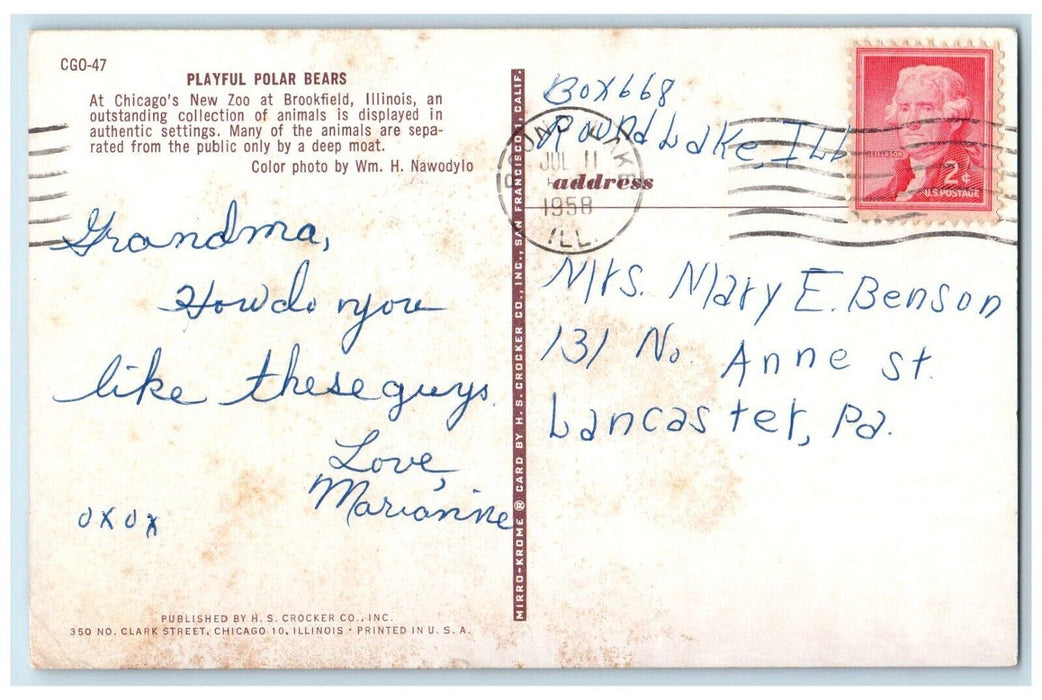 CGO-47
PLAYFUL POLAR BEARS
At Chicago's New Zoo at Brookfield, Illinois, an
outstanding collection of animals is displayed in
authentic settings. Many of the animals are sepa-
rated from the public only by a deep moat.
Color photo by Wm. H. Nawodylo
Grandma,
How do you
like these guys.
Love,
Marianne
oxox
PUBLISHED BY H. S. CROCKER CO., INC.
350 NO. CLARK STREET, CHICAGO 10, ILLINOIS · PRINTED IN U. S. A.
MIRRO-KROME ® CARD BY H. S. CROCKER CO., INC., SAN FRANCISCO, CALIF.
Box 668
Round Lake, Ill
ROUND LAKE
JUL 11
1958
ILL.
address
JEFFERSON
2¢
U.S. POSTAGE
Mrs. Mary E. Benson
131 No. Anne St.
Lancaster, Pa.